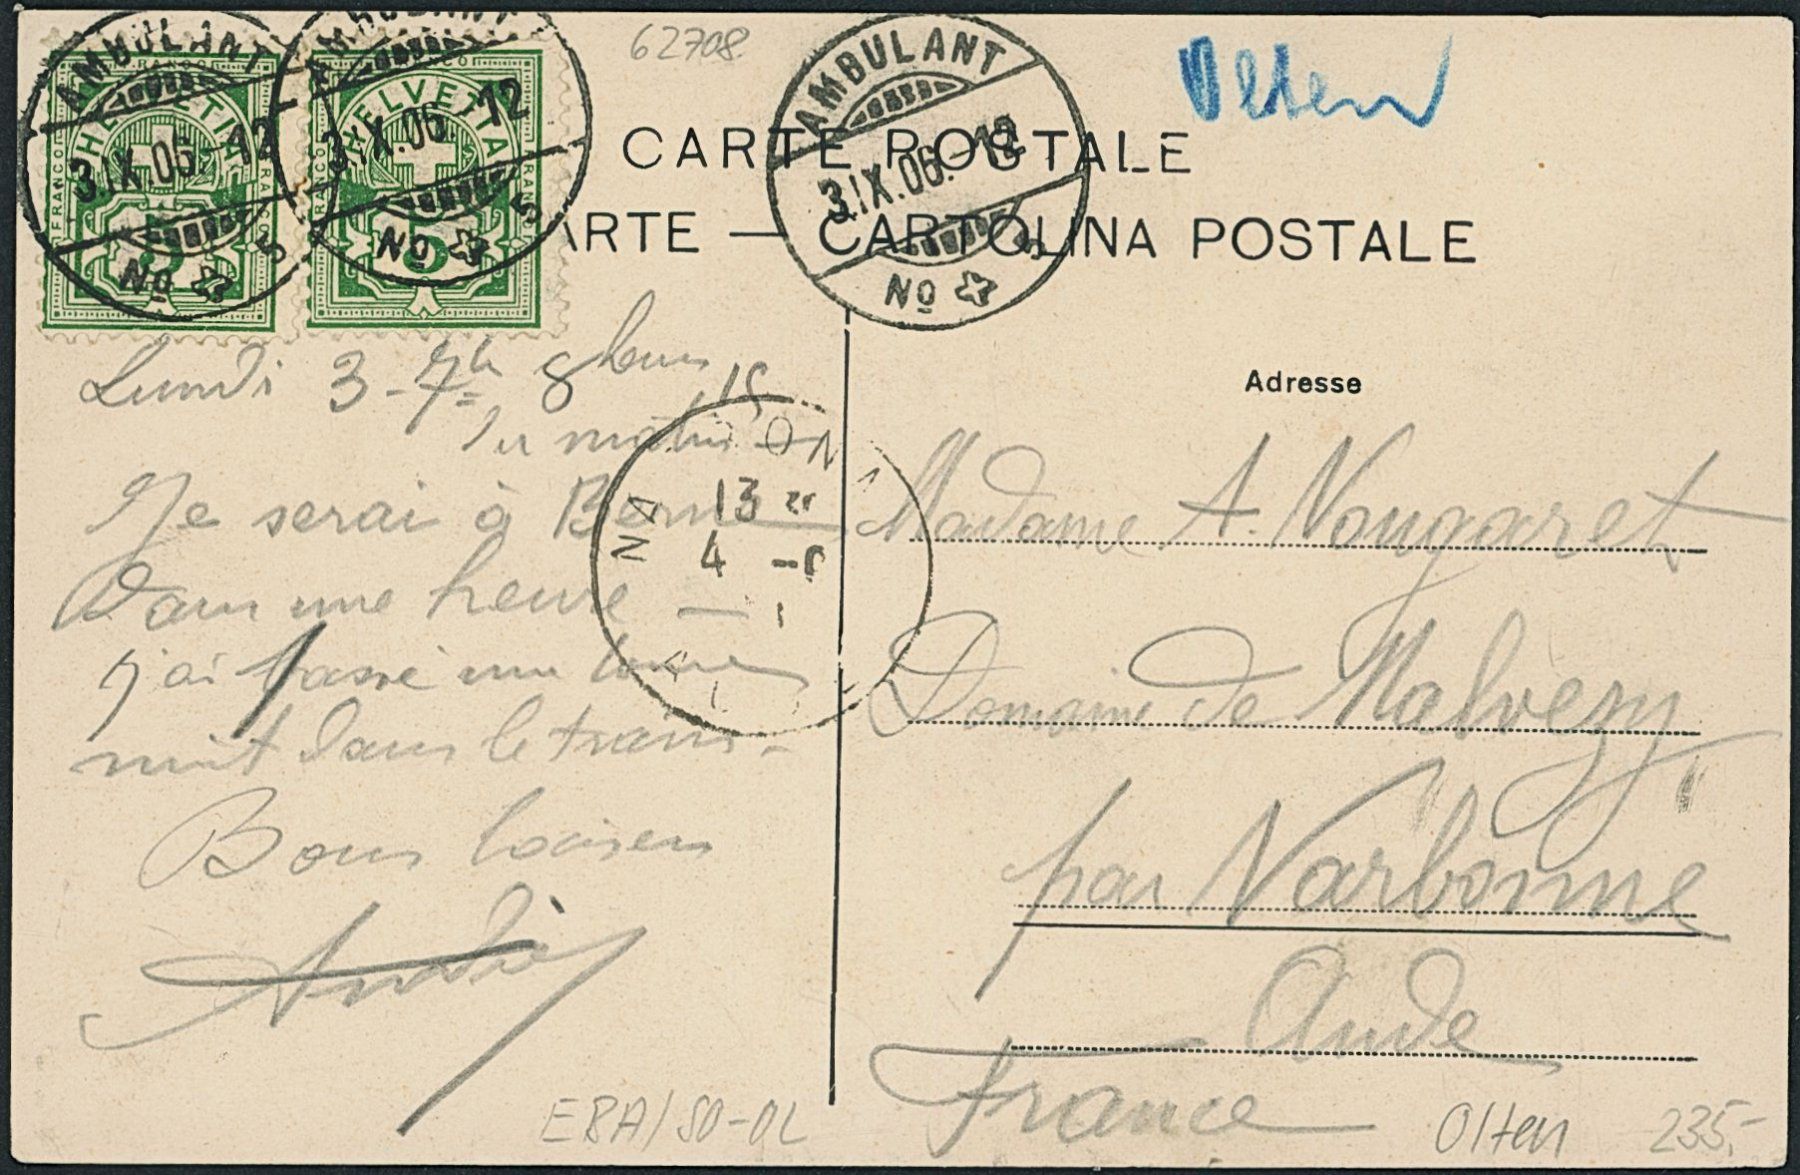 62708
Olten
CARTE POSTALE
ARTE — CARTOLINA POSTALE
AMBULANT
3.IX.06.-12
No 5
AMBULANT
3.IX.06.-12
No 5
AMBULANT
3.IX.06.-12
No 5
FRANCO
HELVETIA
5
FRANCO
HELVETIA
5
Lundi 3 - 7bre 8 heures
du matin
Je serai à Berne
dans une heure —
j'ai passé une bonne
nuit dans le train -
Bons baisers
André
13
4
Adresse
Madame A. Nougaret
Domaine de Malvezy
par Narbonne
Aude
France
EBA/SO-OL
Olten
235,-